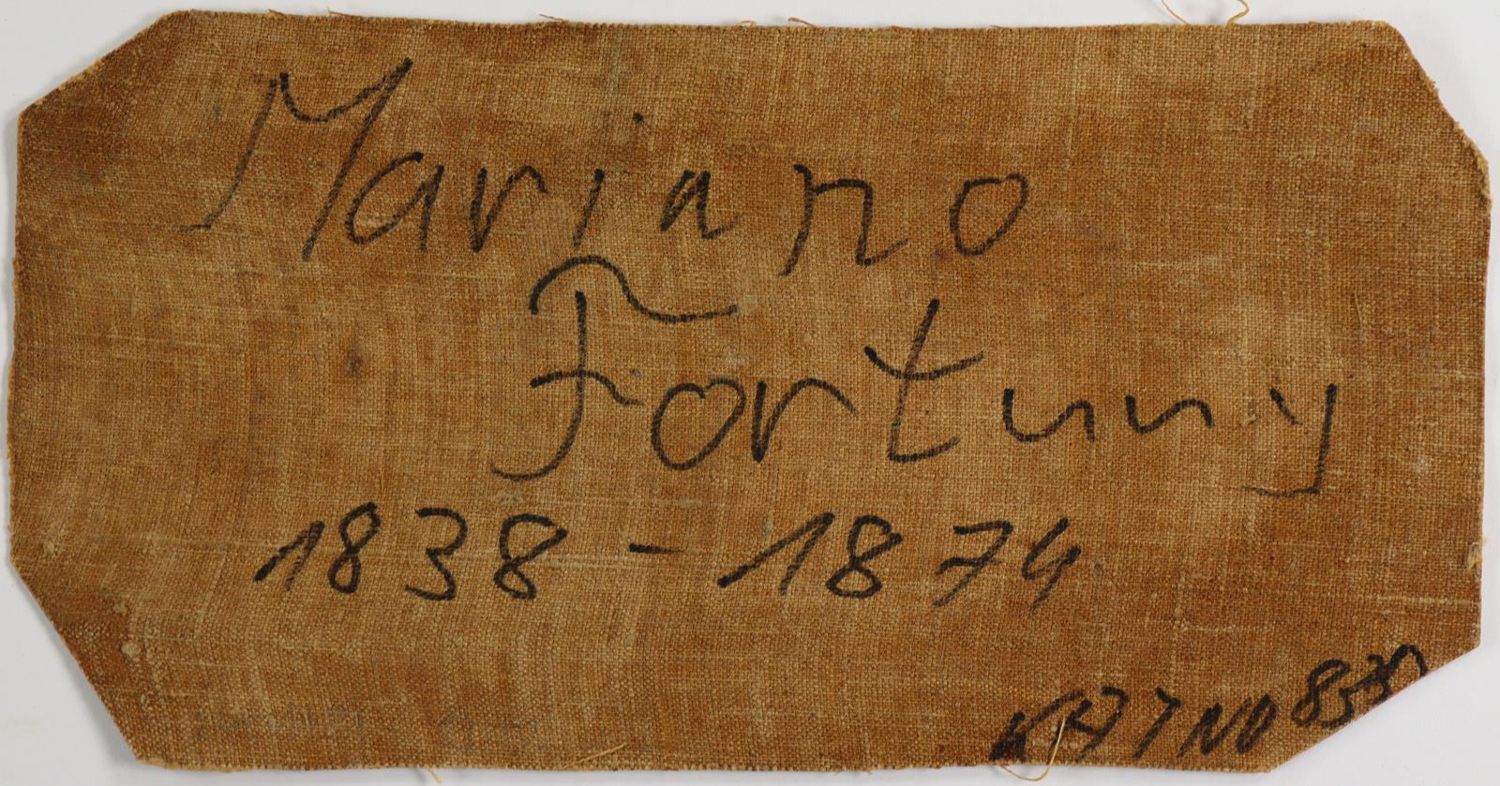 Mariano
Fortuny
1838 - 1874
NO